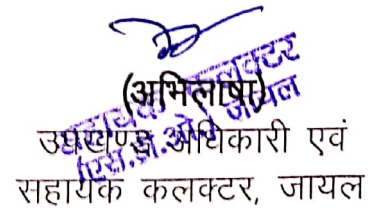 (अभिलाषा)
उपखण्ड अधिकारी एवं
सहायक कलक्टर, जायल
सहायक कलक्टर
(एस.डी.ओ.) जायल